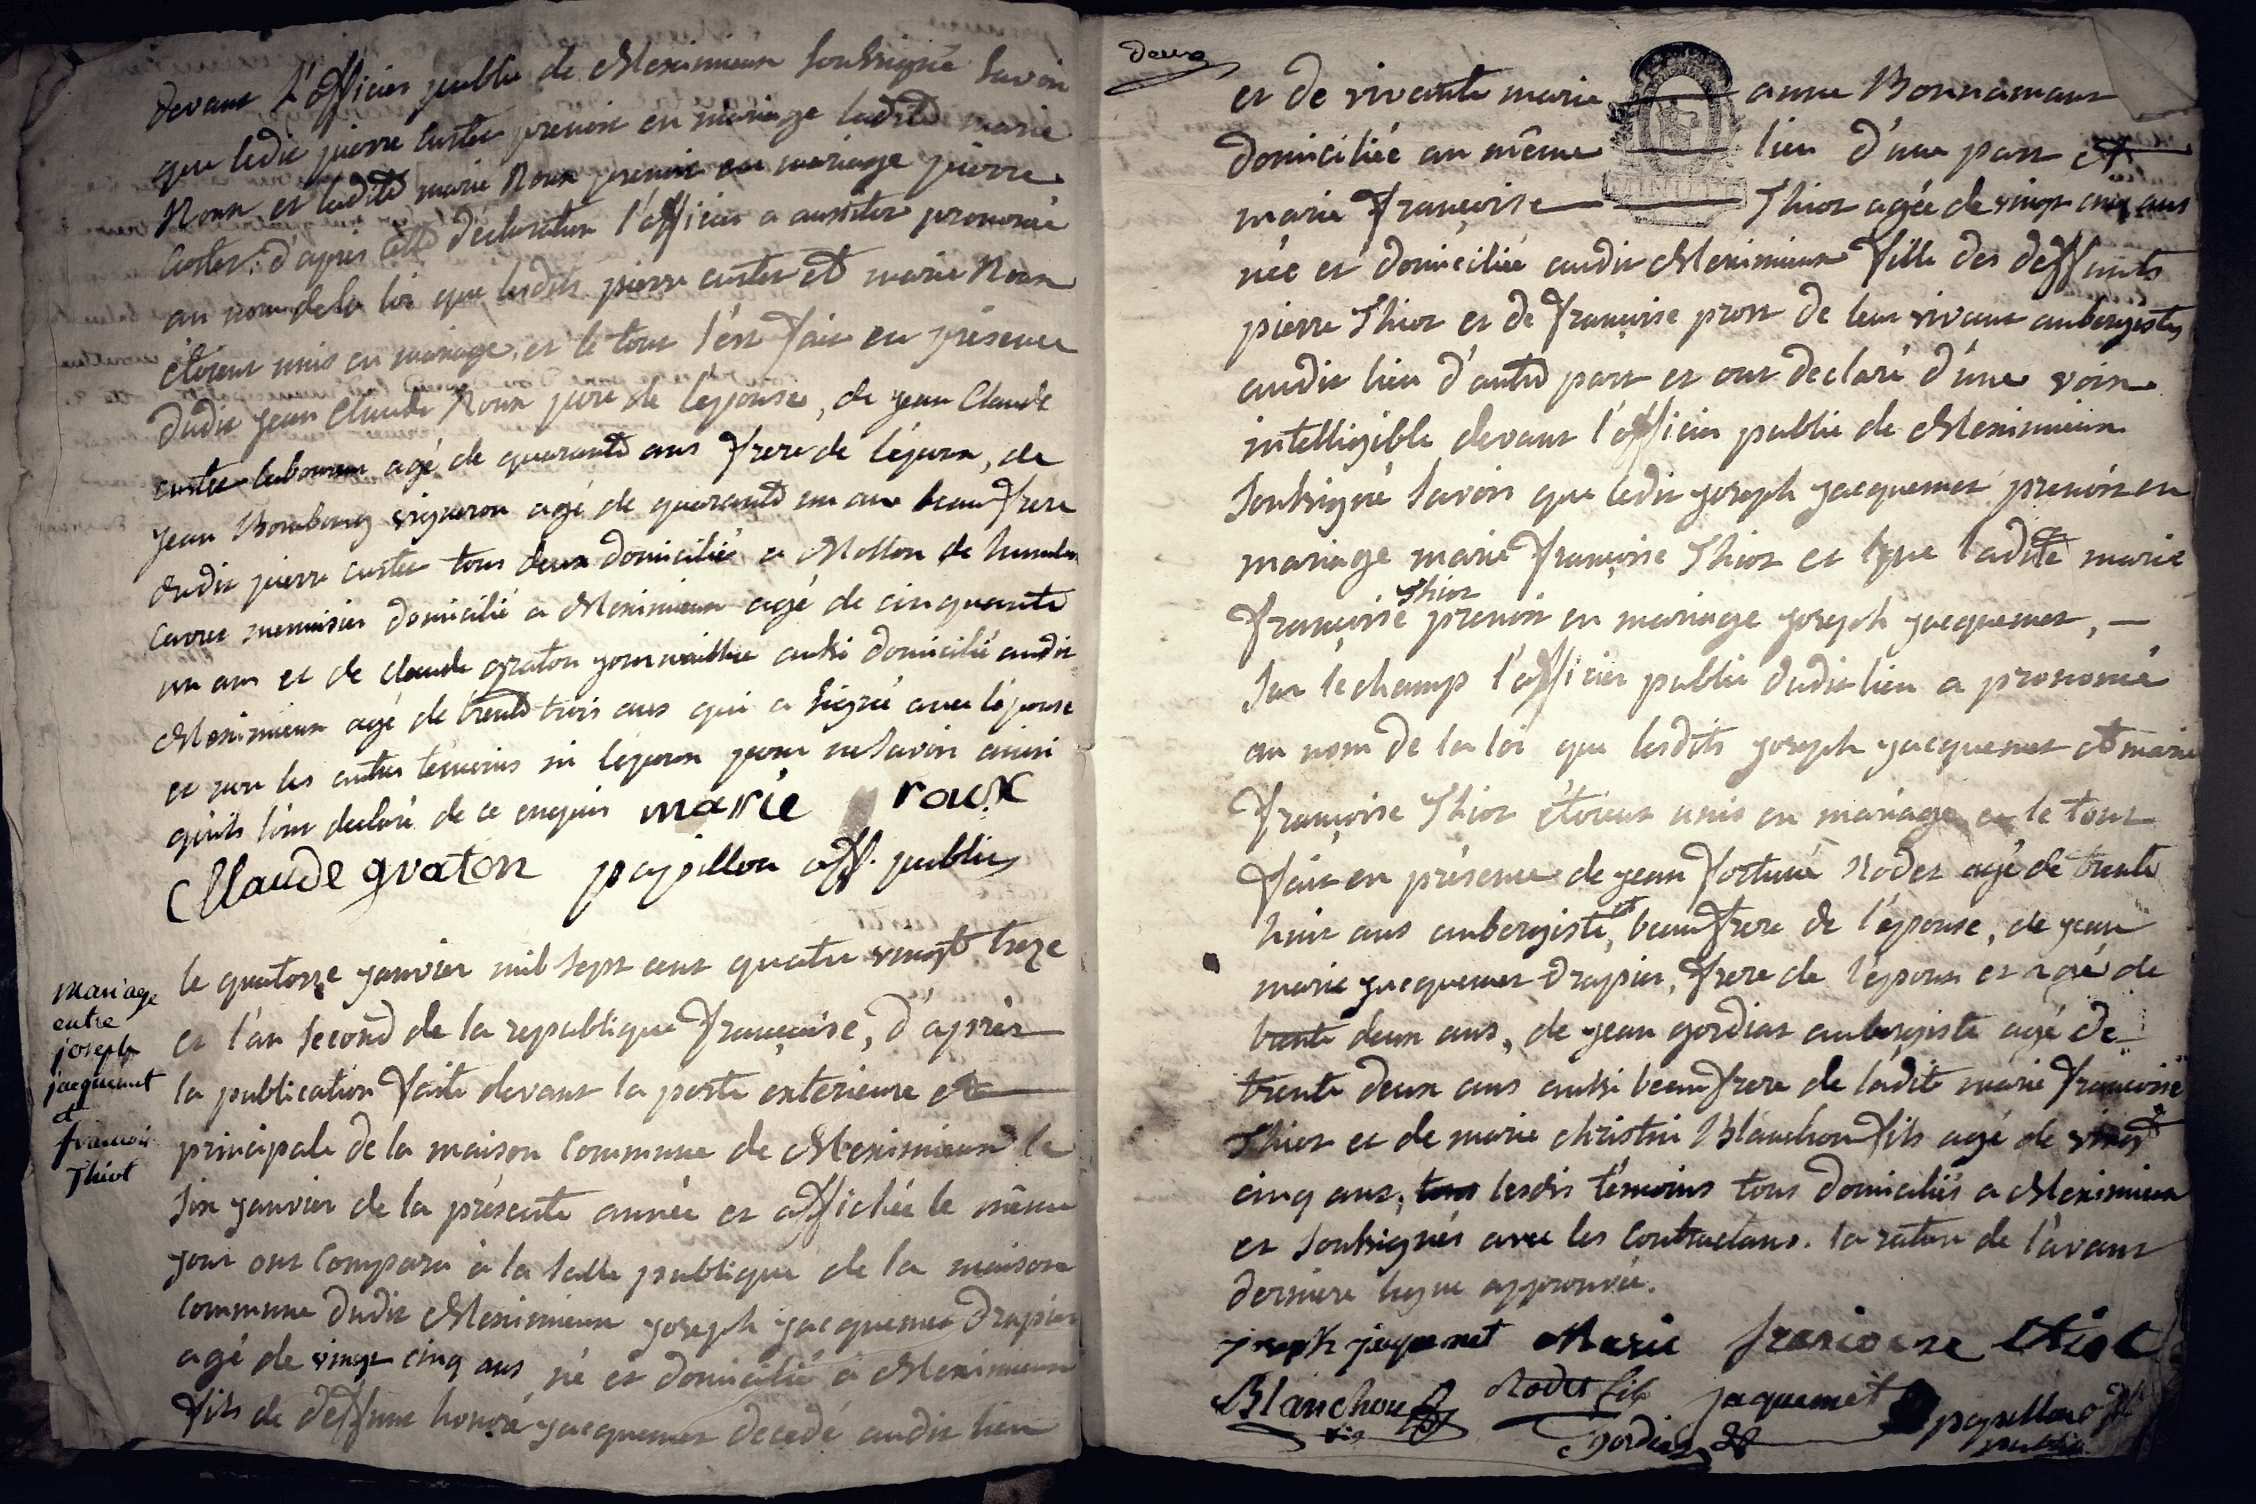 devant l'officier public de Meximieux soussigné savoir
que ledit pierre custer prenoit en mariage ladite marie
Roux et ladite marie Roux prenoit en mariage pierre
custer. d'après cette déclaration l'officier a aussitot prononcé
au nom de la loi que lesdits pierre custer et marie Roux
étoient unis en mariage, et le tout s'est fait en présence
dudit jean Claude Roux pere de l'epouse, de jean Claude
custer laboureur agé de quarante ans frere de l'époux, de
jean vigneron agé de quarante un ans beau frere
dudit pierre custer tous deux domiciliés a de
menuisier domicilié a Meximieux agé de cinquante
un ans et de claude graton aussi domicilié audit
Meximieux agé de trente trois ans qui a signé avec l'épouse
et non les autres témoins ni l'époux pour ne savoir ainsi
qu'ils l'ont declaré de ce enquis marie roux
Claude graton papillon off. public
mariage
entre
joseph
jacquemet
et
francoise
Thiot
le quatorze janvier mil sept cent quatre vingt treze
et l'an second de la republique française, d'après
la publication faite devant la porte exterieure et
principale de la maison commune de Meximieux le
six janvier de la présente année et affichée le même
jour ont comparu à la salle publique de la maison
commune dudit Meximieux joseph jacquemet drapier
agé de vingt cinq ans né et domicilié à Meximieux
fils de deffunt honoré jacquemet decedé audit lieu
deux
et de vivante marie anne Bonnamant
domiciliée au même lieu d'une part et
MINUTE
marie françoise Thiot agée de vingt cinq ans
née et domiciliée audit Meximieux fille des deffunts
pierre Thiot et de françoise prost de leur vivant aubergistes
audit lieu d'autre part et ont declaré d'une voix
intelligible devant l'officier public de Meximieux
soussigné savoir que ledit joseph jacquemet prenoit en
mariage marie françoise Thiot et que ladite marie
Thiot
françoise prenoit en mariage joseph jacquemet,
sur le champ l'officier public dudit lieu a prononcé
au nom de la loi que lesdits joseph jacquemet et marie
françoise Thiot étoient unis en mariage et le tout
fait en présence de jean fortuné Rodet agé de trente
huit ans aubergiste, beau frere de l'épouse, de jean
marie jacquemet drapier, frere de l'époux et agé de
trente deux ans, de jean gordiat aubergiste agé de
trente deux ans aussi beau frere de ladite marie françoise
Thiot et de marie christin Blanchon fils agé de vingt
cinq ans, tous lesdits témoins tous domiciliés a Meximieux
et soussignés avec les contractans. la rature de l'avant
derniere ligne approuvée.
joseph jaquemet Marie francoise thiot
Blanchon fils Rodet jaquemet papillon off
gordiat public